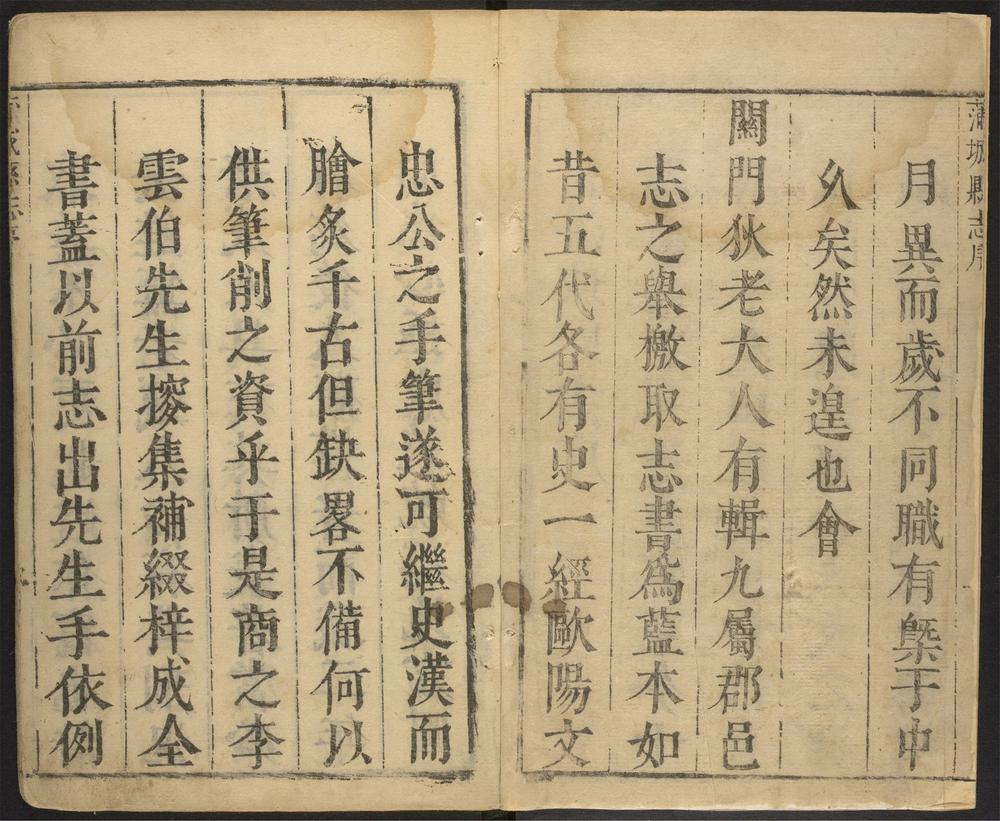 蒲城縣志序
月異而歲不同職有槩于中
乆矣然未遑也會
關門狄老大人有輯九屬郡邑
志之舉檄取志書爲藍本如
昔五代各有史一經歐陽文
忠公之手筆遂可繼史漢而
膾炙千古但缺畧不備何以
供筆削之資乎于是商之李
雲伯先生搜集補綴梓成全
書蓋以前志出先生手依例